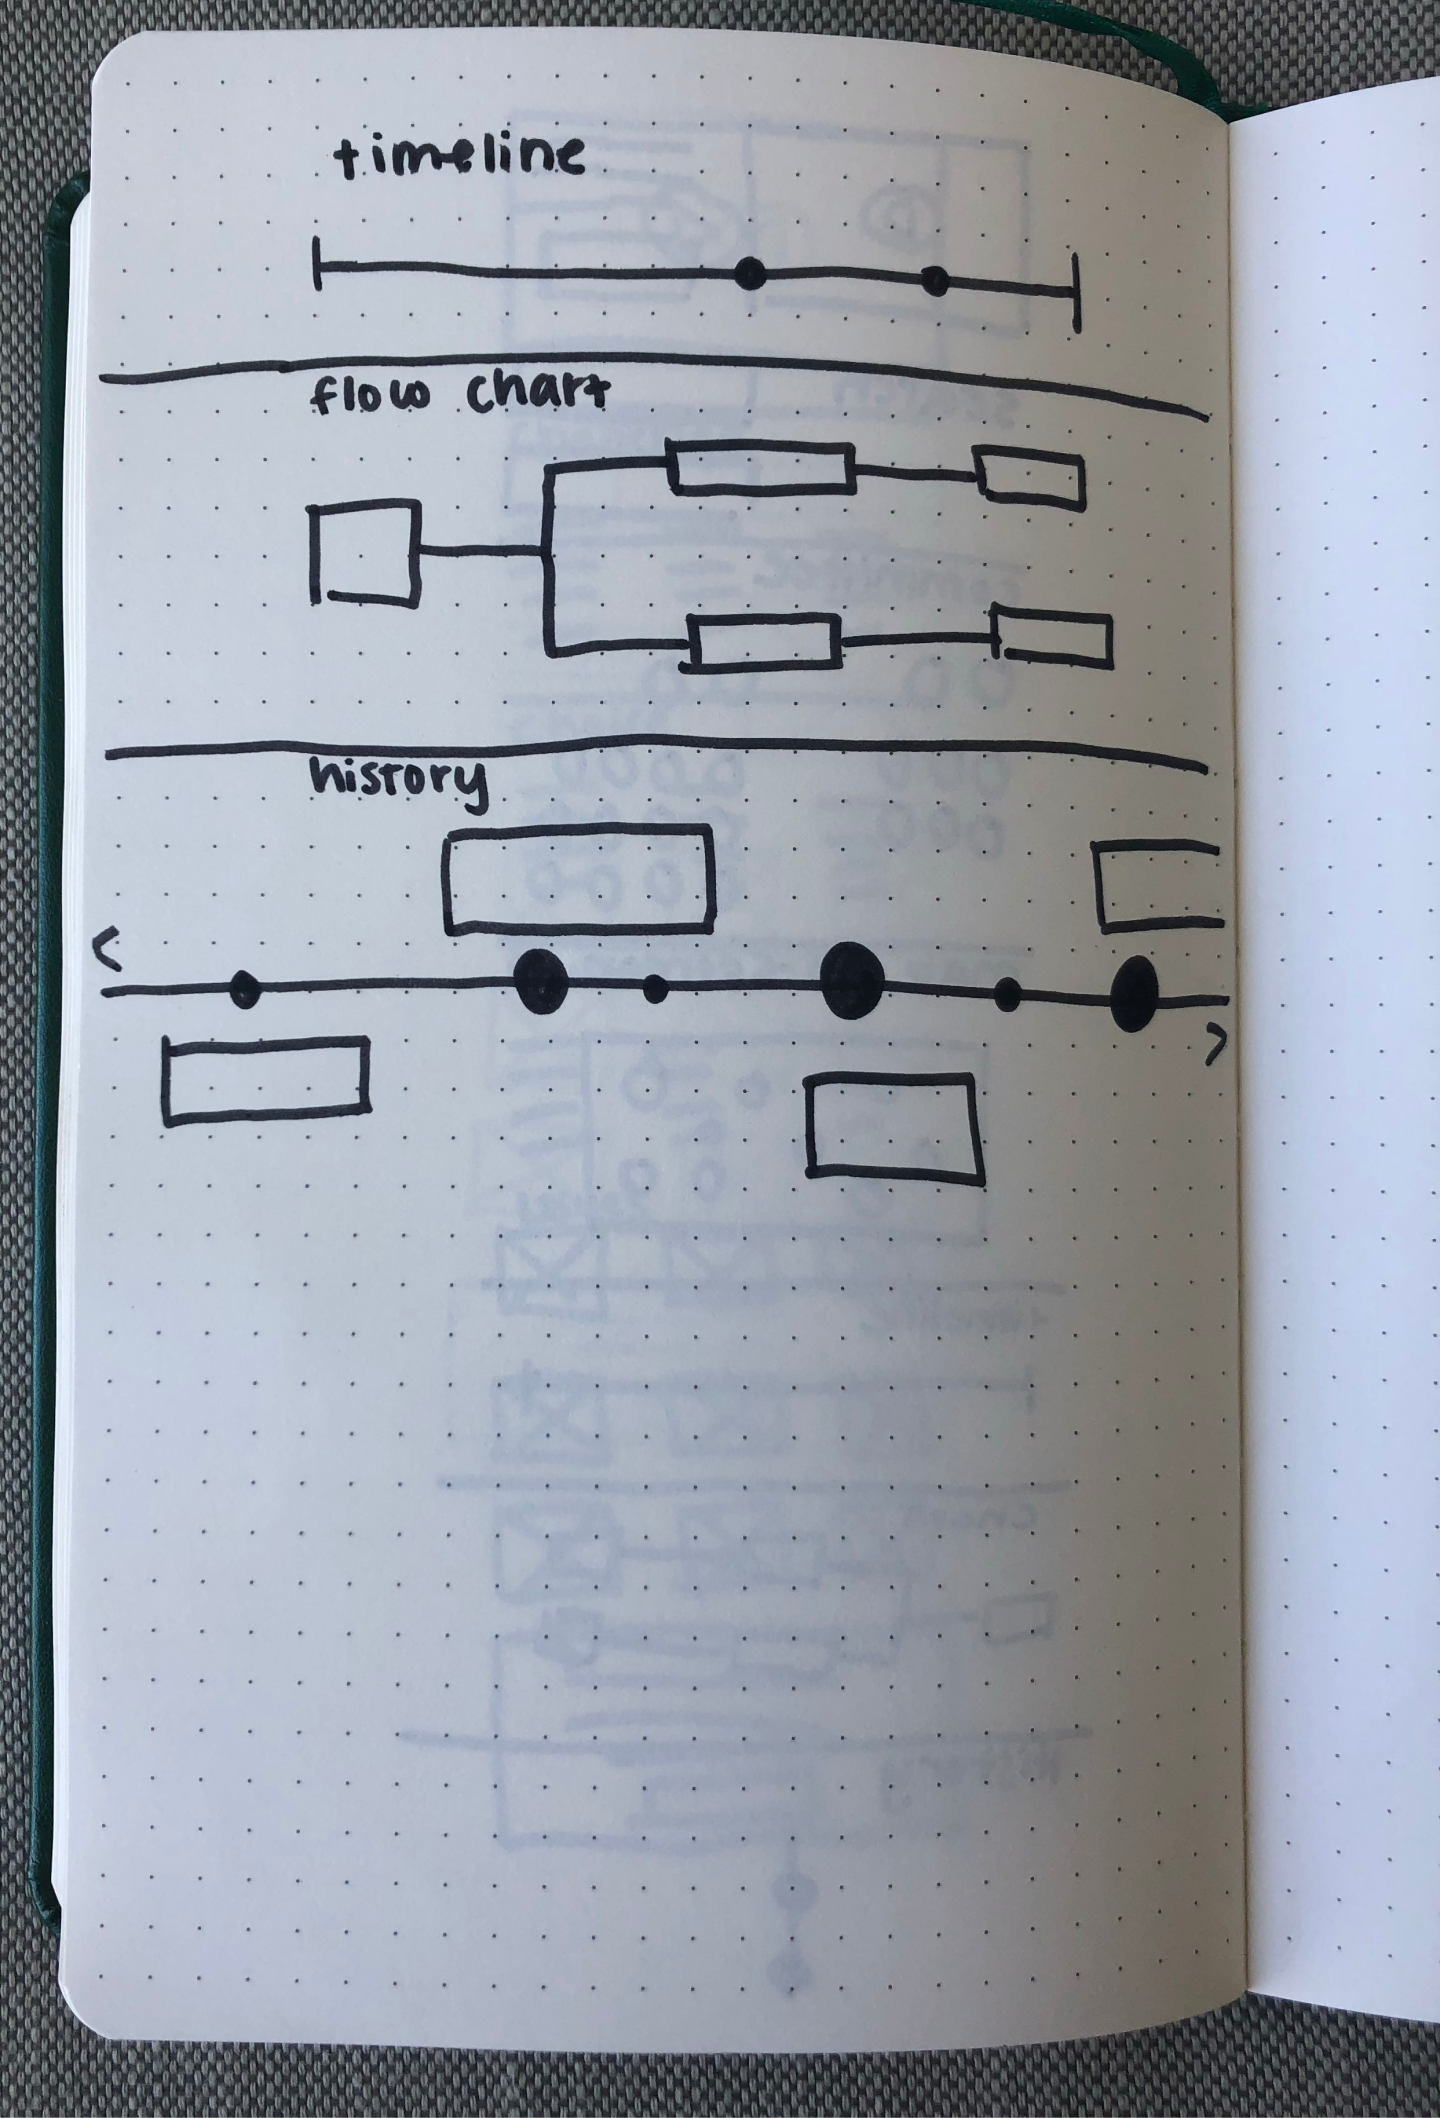 timeline
flow chart
history